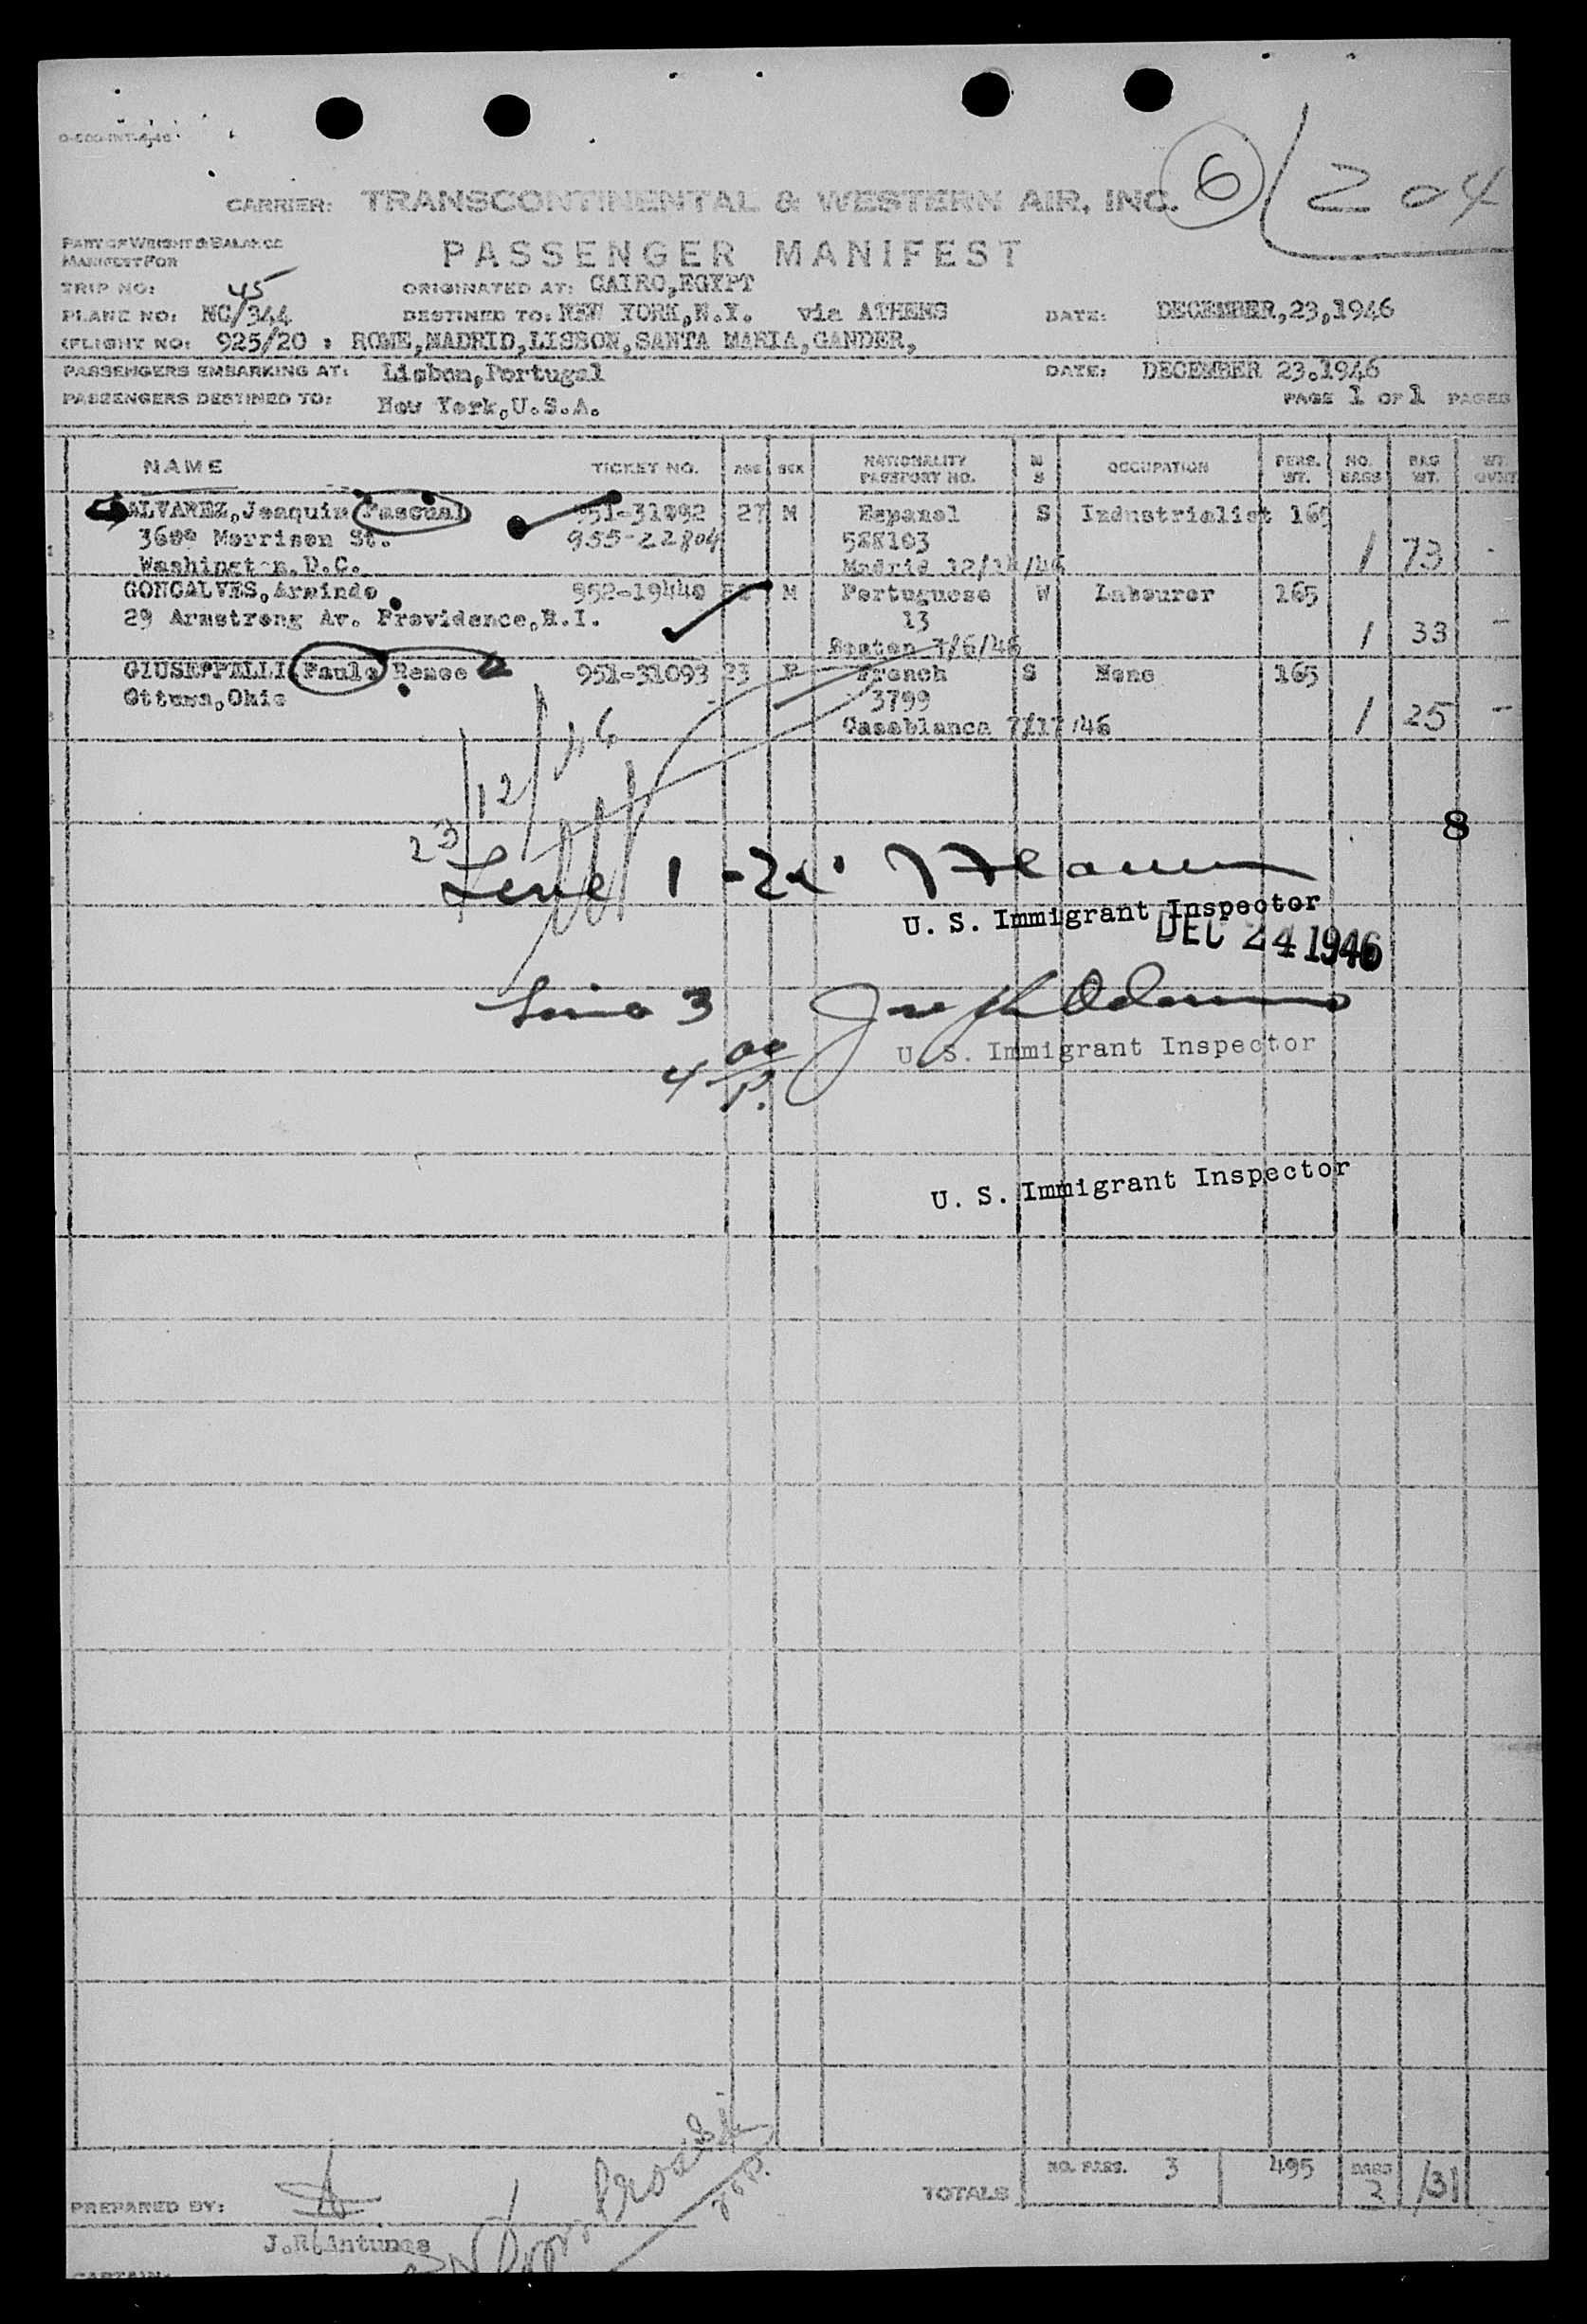 O-500-INT-4-46
6
204
CARRIER: TRANSCONTINENTAL & WESTERN AIR, INC.
PART OF WEIGHT & BALANCE
MANIFEST FOR
PASSENGER MANIFEST
TRIP NO: 45 ORIGINATED AT: CAIRO,EGYPT
PLANE NO: NC/344 DESTINED TO: NEW YORK,N.Y. via ATHENS DATE: DECEMBER,23,1946
(FLIGHT NO: 925/20 : ROME,MADRID,LISBON,SANTA MARIA,GANDER,
PASSENGERS EMBARKING AT: Lisbon,Portugal DATE: DECEMBER 23.1946
PASSENGERS DESTINED TO: New York,U.S.A. PAGE 1 OF 1 PAGES
NAME TICKET NO. AGE SEX NATIONALITY PASSPORT NO. M S OCCUPATION PERS. WT. NO. BAGS BAG WT. WT. OVNT
ALVAREZ,Joaquim Pascual 951-31092 27 M Espanol S Industrialist 165
3600 Morrison St. 955-22804 588103 1 73 -
Washington.D.C. Madrid 12/14/46
GONCALVES,Armindo 952-19440 M Portuguese W Labourer 165
29 Armstrong Av. Providence,R.I. 13 1 33 -
Boston 7/6/46
GIUSEPPELLI Paule Renee 951-31093 23 F French S None 165
Ottawa,Ohio 3799 1 25 -
Casablanca 7/17/46
23/12/46
8
Line 1-2
U. S. Immigrant Inspector
DEC 24 1946
Line 3 Joseph
U. S. Immigrant Inspector
4 00 P.
U. S. Immigrant Inspector
TOTALS NO. PASS. 3 495 BAGS 2 131
PREPARED BY:
J.R.Antunes
CAPTAIN: